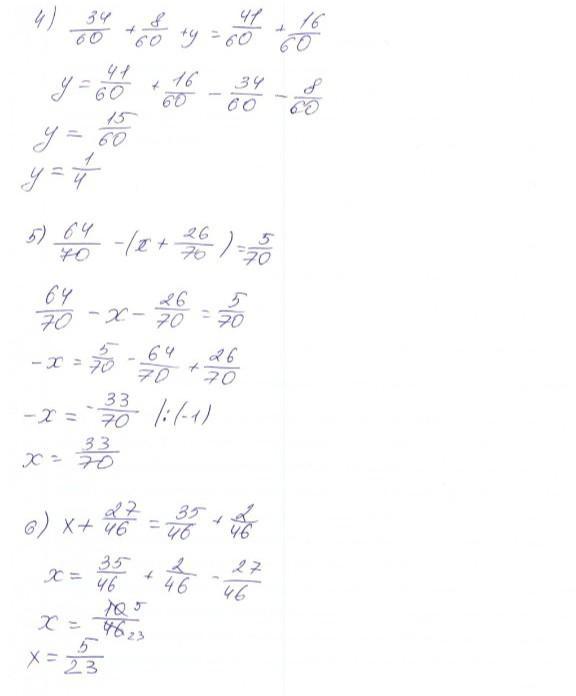 4) 34/60 + 8/60 + y = 41/60 + 16/60
y = 41/60 + 16/60 - 34/60 - 8/60
y = 15/60
y = 1/4
5) 64/70 - (x + 26/70) = 5/70
64/70 - x - 26/70 = 5/70
-x = 5/70 - 64/70 + 26/70
-x = -33/70 |:(-1)
x = 33/70
6) x + 27/46 = 35/46 + 2/46
x = 35/46 + 2/46 - 27/46
x = 10 5/46 23
x = 5/23